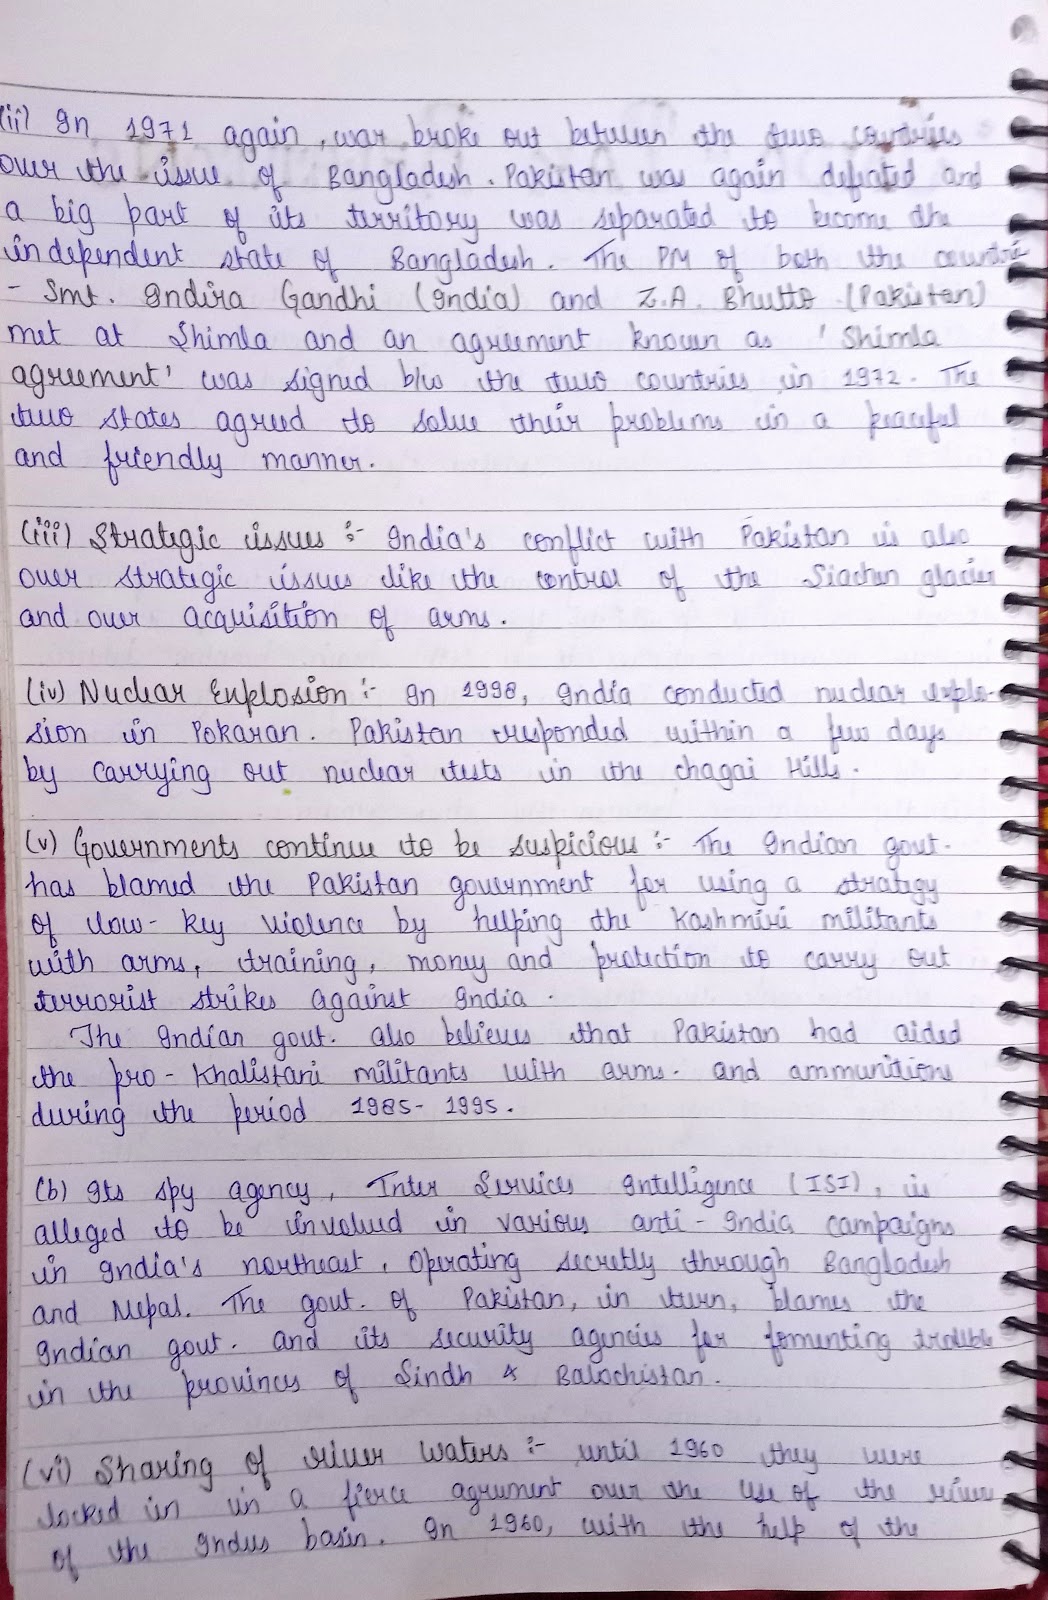 (ii) In 1971 again, war broke out between the two countries
over the issue of Bangladesh. Pakistan was again defeated and
a big part of its territory was separated to become the
independent state of Bangladesh. The PM of both the countrie
- Smt. Indira Gandhi (India) and Z.A. Bhutto (Pakistan)
met at Shimla and an agreement known as 'Shimla
agreement' was signed b/w the two countries in 1972. The
two states agreed to solve their problems in a peaceful
and friendly manner.
(iii) Strategic issues :- India's conflict with Pakistan is also
over strategic issues like the control of the Siachen glacier
and over acquisition of arms.
(iv) Nuclear Explosion :- In 1998, India conducted nuclear explo-
sion in Pokaran. Pakistan responded within a few days
by carrying out nuclear tests in the chagai Hills.
(v) Governments continue to be suspicious :- The Indian govt.
has blamed the Pakistan government for using a strategy
of low-key violence by helping the Kashmiri militants
with arms, training, money and protection to carry out
terrorist strikes against India.
The Indian govt. also believes that Pakistan had aided
the pro-Khalistani militants with arms. and ammunitions
during the period 1985-1995.
(b) Its spy agency, Inter Services Intelligence (ISI), is
alleged to be involved in various anti-India campaigns
in India's northeast, Operating secretly through Bangladesh
and Nepal. The govt. of Pakistan, in turn, blames the
Indian govt. and its security agencies for fomenting trouble
in the provinces of Sindh & Balochistan.
(vi) Sharing of river waters :- until 1960 they were
locked in in a fierce agrument over the use of the river
of the Indus basin. In 1960, with the help of the